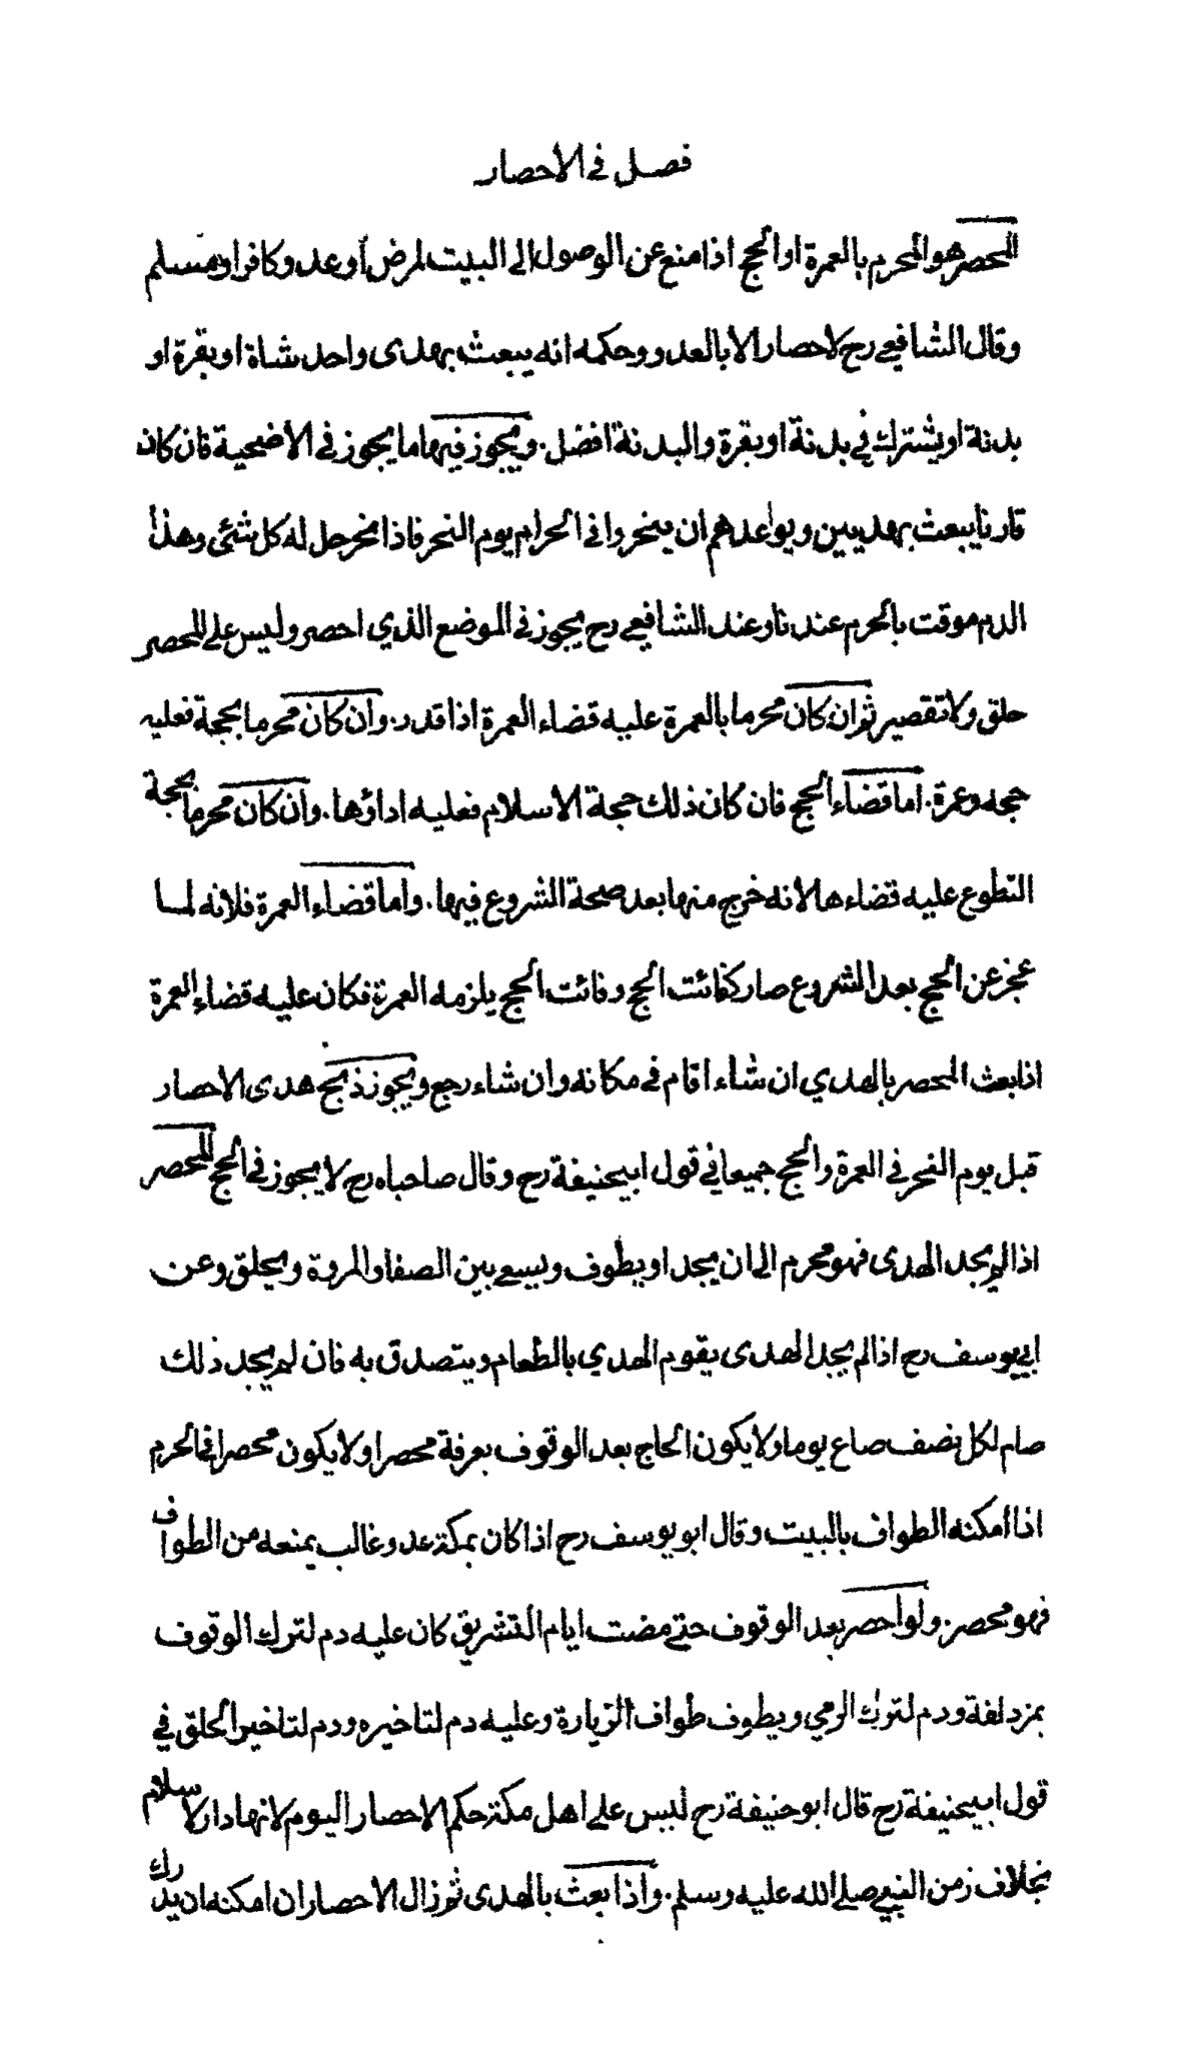 فصل في الاحصار
المحصر هو المحرم بالعمرة او الحج اذا منع عن الوصول الى البيت لمرض أو عدو كافر او مسلم
وقال الشافعي رح لا حصار الا بالعدو وحكمه انه يبعث بهدى واحد شاة او بقرة او
بدنة او يشترك في بدنة او بقرة والبدنة افضل. ويجوز فيها ما يجوز في الأضحية فان كان
قارنا يبعث بهديين ويواعدهم ان ينحروا في الحرام يوم النحر فاذا نحر حل له كل شئى وهذا
الدم موقت بالحرم عندنا وعند الشافعي رح يجوز في الموضع الذي احصر وليس على المحصر
حلق ولا تقصير ثم ان كان محرما بالعمرة عليه قضاء العمرة اذا قدر. وان كان محرما بحجة فعليه
حجه وعمرة. اما قضاء الحج فان كان ذلك حجة الاسلام فعليه اداؤها. وان كان محرما بحجة
التطوع عليه قضاءها لانه خرج منها بعد صحة الشروع فيها. واما قضاء العمرة فلانه لما
عجز عن الحج بعد الشروع صار كفائت الحج وفائت الحج يلزمه العمرة فكان عليه قضاء العمرة
اذا بعث المحصر بالهدي ان شاء اقام في مكانه وان شاء رجع ويجوز ذبح هدى الاحصار
قبل يوم النحر في العمرة والحج جميعا في قول ابيحنيفة رح وقال صاحباه رح لا يجوز في الحج للمحصر
اذا لم يجد الهدى فهو محرم الى ان يجد او يطوف ويسعى بين الصفا والمروة ويحلق وعن
ابي يوسف رح اذا لم يجد الهدى يقوم الهدي بالطعام ويتصدق به فان لم يجد ذلك
صام لكل نصف صاع يوما ولا يكون الحاج بعد الوقوف بعرفة محصرا ولا يكون محصرا في الحرم
اذا أمكنه الطواف بالبيت وقال ابو يوسف رح اذا كان بمكة عدو غالب يمنعه من الطواف
فهو محصر. ولو احصر بعد الوقوف حتى مضت ايام التشريق كان عليه دم لترك الوقوف
بمزدلفة ودم لترك الرمي ويطوف طواف الزيارة وعليه دم لتاخيره ودم لتاخير الحلق في
قول ابيحنيفة رح قال ابو حنيفة رح ليس على اهل مكة حكم الاحصار اليوم لانها دار الاسلام
بخلاف زمن النبي صلى الله عليه وسلم. واذا بعث بالهدى ثم زال الاحصار ان امكنه ان يدرك